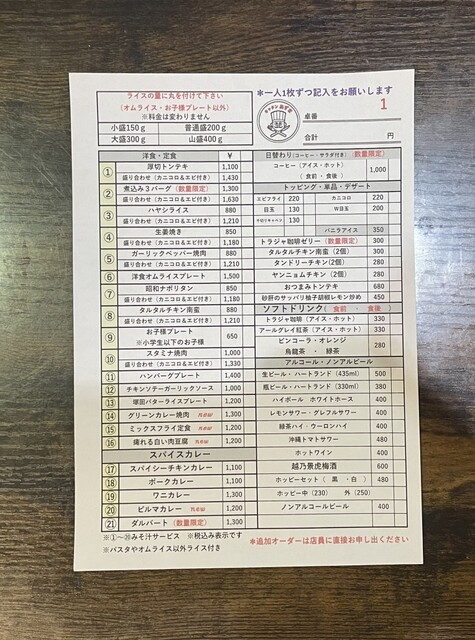 ライスの量に丸を付けて下さい
(オムライス・お子様プレート以外)
※料金は変わりません
小盛150g 普通盛200g
大盛300g 山盛400g
キッチンあずま
＊一人1枚ずつ記入をお願いします
1
卓番
合計 円
洋食・定食 ¥
① 厚切トンテキ 1,100
盛り合わせ(カニコロ&エビ付き) 1,430
② 煮込み3バーグ(数量限定) 1,300
盛り合わせ(カニコロ&エビ付き) 1,630
③ ハヤシライス 880
盛り合わせ(カニコロ&エビ付き) 1,210
④ 生姜焼き 850
盛り合わせ(カニコロ&エビ付き) 1,180
⑤ ガーリックペッパー焼肉 880
盛り合わせ(カニコロ&エビ付き) 1,210
⑥ 洋食オムライスプレート 1,500
⑦ 昭和ナポリタン 850
盛り合わせ(カニコロ&エビ付き) 1,180
⑧ タルタルチキン南蛮 880
盛り合わせ(カニコロ&エビ付き) 1,210
⑨ お子様プレート 650
※小学生以下のお子様
⑩ スタミナ焼肉 1,000
盛り合わせ(カニコロ&エビ付き) 1,330
⑪ ハンバーグプレート 1,400
⑫ チキンソテーガーリックソース 1,000
⑬ 塚田バターライスプレート 1,200
⑭ グリーンカレー焼肉 new 1,300
⑮ ミックスフライ定食 new 1,200
⑯ 痺れる白い肉豆腐 new 1,200
スパイスカレー
⑰ スパイシーチキンカレー 1,100
⑱ ポークカレー 1,100
⑲ ワニカレー 1,300
⑳ ビルマカレー new 1,200
㉑ ダルバート(数量限定) 1,300
※①〜⑳みそ汁サービス ※税込み表示です
※パスタやオムライス以外ライス付き
日替わり(コーヒー・サラダ付き)(数量限定)
コーヒー(アイス・ホット) 1,000
(食前・食後)
トッピング・単品・デザート
エビフライ 220 カニコロ 220
目玉 130 W目玉 200
千切りキャベツ 130
バニラアイス 350
トラジャ珈琲ゼリー(数量限定) 300
タルタルチキン南蛮(2個) 300
タンドリーチキン(2個) 280
ヤンニョムチキン(2個) 280
おつまみトンテキ 680
砂肝のサッパリ柚子胡椒レモン炒め 450
ソフトドリンク(食前・食後)
トラジャ珈琲(アイス・ホット) 330
アールグレイ紅茶(アイス・ホット) 330
ビンコーラ・オレンジ 280
烏龍茶・緑茶
アルコール・ノンアルビール
生ビール・ハートランド(435ml) 500
瓶ビール・ハートランド(330ml) 380
ハイボール ホワイトホース 400
レモンサワー・グレフルサワー 400
緑茶ハイ・ウーロンハイ 400
沖縄トマトサワー 480
ホットワイン 400
越乃景虎梅酒 600
ホッピーセット(黒・白) 480
ホッピー中(230) 外(250)
ノンアルコールビール 400
＊追加オーダーは店員に直接お申し出ください